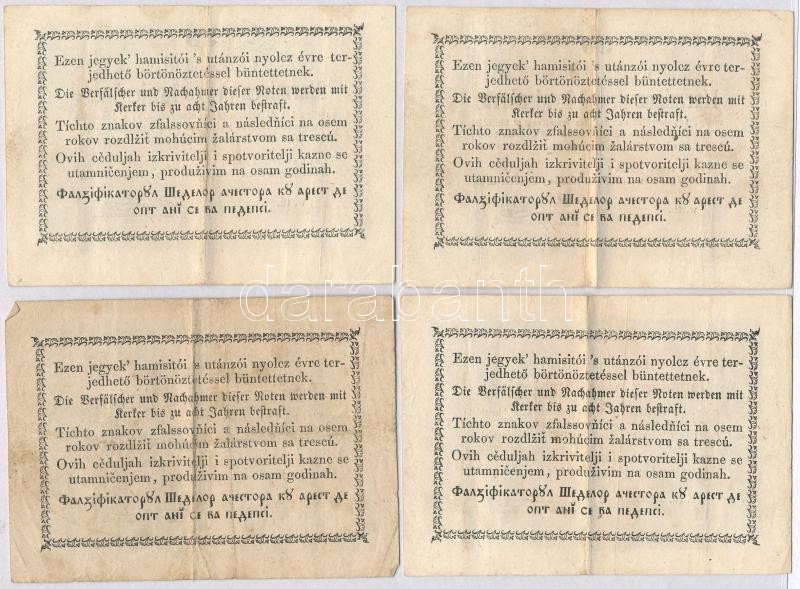 Ezen jegyek' hamisitói 's utánzói nyolcz évre ter-
jedhető börtönöztetéssel büntettetnek.
Die Verfälscher und Nachahmer dieser Noten werden mit
Kerker bis zu acht Jahren bestraft.
Tíchto znakov zfalssovňíci a následňíci na osem
rokov rozdlžiť mohúcim žalárstvom sa trescú.
Ovih cěduljah izkrivitelji i spotvoritelji kazne se
utamničenjem, produživim na osam godinah.
Фалзіфікаторꙋл Шеделор ачестора кꙋ арест де
опт анĭ се ва педепсі.
Ezen jegyek' hamisitói 's utánzói nyolcz évre ter-
jedhető börtönöztetéssel büntettetnek.
Die Verfälscher und Nachahmer dieser Noten werden mit
Kerker bis zu acht Jahren bestraft.
Tíchto znakov zfalssovňíci a následňíci na osem
rokov rozdlžiť mohúcim žalárstvom sa trescú.
Ovih cěduljah izkrivitelji i spotvoritelji kazne se
utamničenjem, produživim na osam godinah.
Фалзіфікаторꙋл Шеделор ачестора кꙋ арест де
опт анĭ се ва педепсі.
darabanth
Ezen jegyek' hamisitói 's utánzói nyolcz évre ter-
jedhető börtönöztetéssel büntettetnek.
Die Verfälscher und Nachahmer dieser Noten werden mit
Kerker bis zu acht Jahren bestraft.
Tíchto znakov zfalssovňíci a následňíci na osem
rokov rozdlžiť mohúcim žalárstvom sa trescú.
Ovih cěduljah izkrivitelji i spotvoritelji kazne se
utamničenjem, produživim na osam godinah.
Фалзіфікаторꙋл Шеделор ачестора кꙋ арест де
опт анĭ се ва педепсі.
Ezen jegyek' hamisitói 's utánzói nyolcz évre ter-
jedhető börtönöztetéssel büntettetnek.
Die Verfälscher und Nachahmer dieser Noten werden mit
Kerker bis zu acht Jahren bestraft.
Tíchto znakov zfalssovňíci a následňíci na osem
rokov rozdlžiť mohúcim žalárstvom sa trescú.
Ovih cěduljah izkrivitelji i spotvoritelji kazne se
utamničenjem, produživim na osam godinah.
Фалзіфікаторꙋл Шеделор ачестора кꙋ арест де
опт анĭ се ва педепсі.